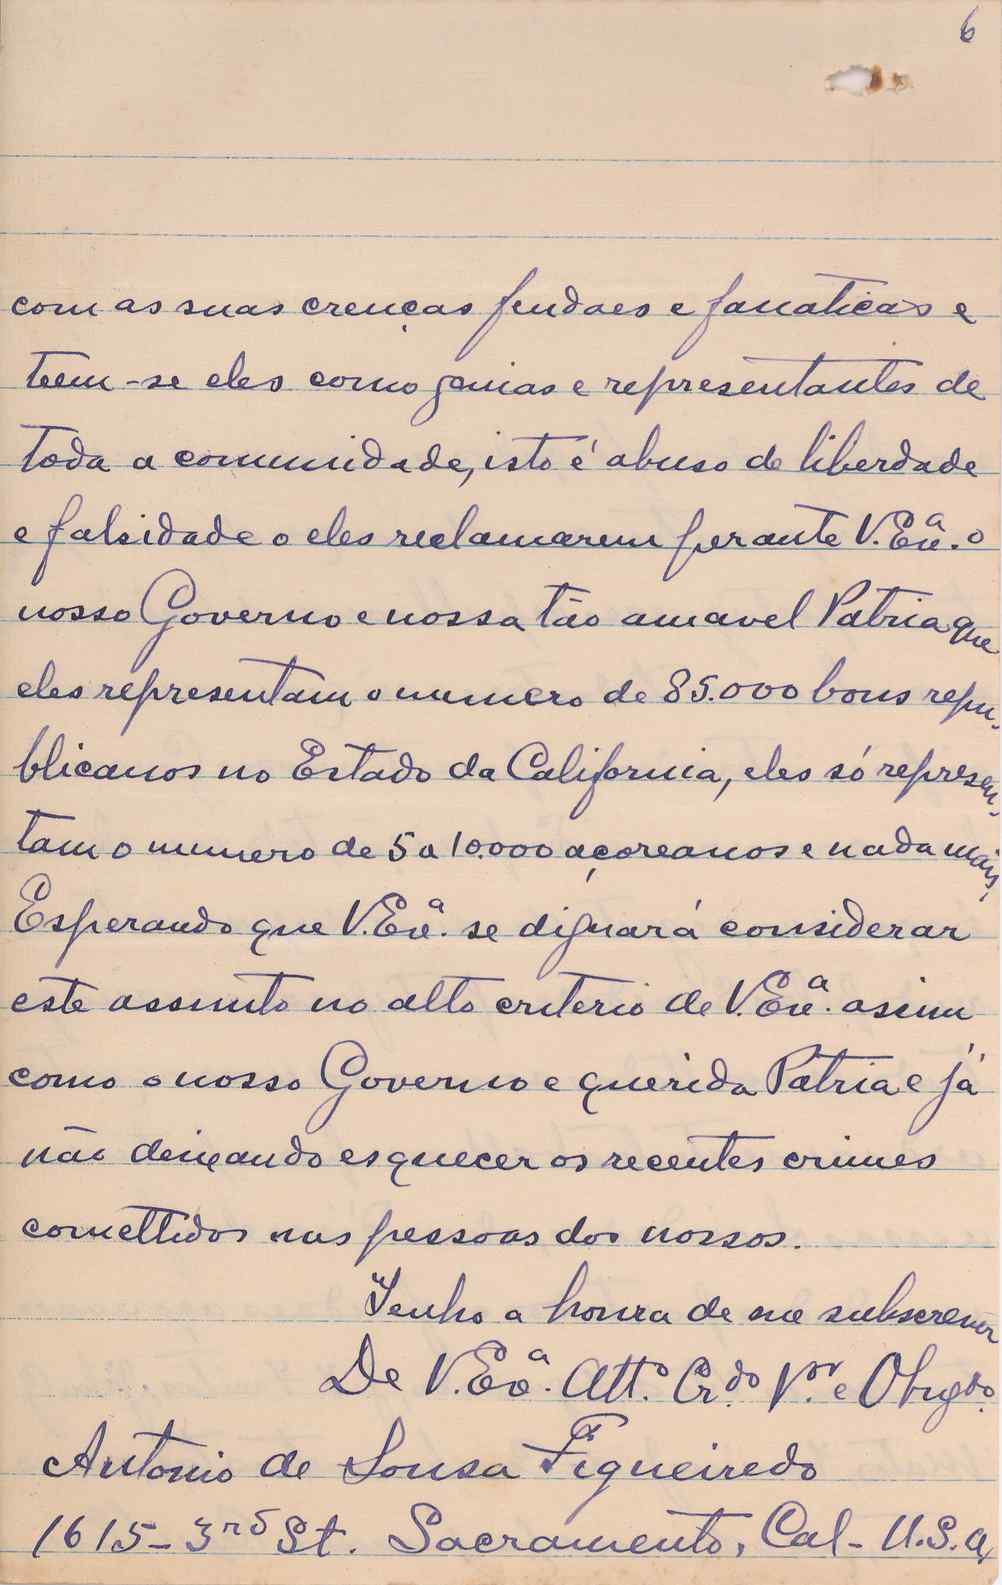 6
com as suas crenças feudaes e fanaticas e
teem-se eles como genias e representantes de
toda a comunidade, isto é abuso de liberdade
e falsidade o eles reclamarem perante V. Exª. o
nosso Governo e nossa tão amavel Patria que
eles representam o numero de 85.000 bons repu-
blicanos no Estado da California, eles só represen-
tam o numero de 5 a 10.000 açoreanos e nada mais,
Esperando que V. Exª. se dignará considerar
este assunto no alto criterio de V. Exª. assim
como o nosso Governo e querida Patria e já
não deixando esquecer os recentes crimes
comettidos nas pessoas dos nossos.
Tenho a honra de me subscrever
De V. Exª. Attº. Crdo. Vor. e Obrgdo.
Antonio de Sousa Figueiredo
1615-3rd St. Sacramento, Cal- U.S.A,